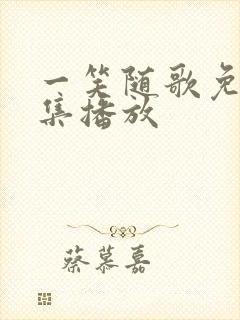 一笑随歌免
集播放
蔡慕嘉